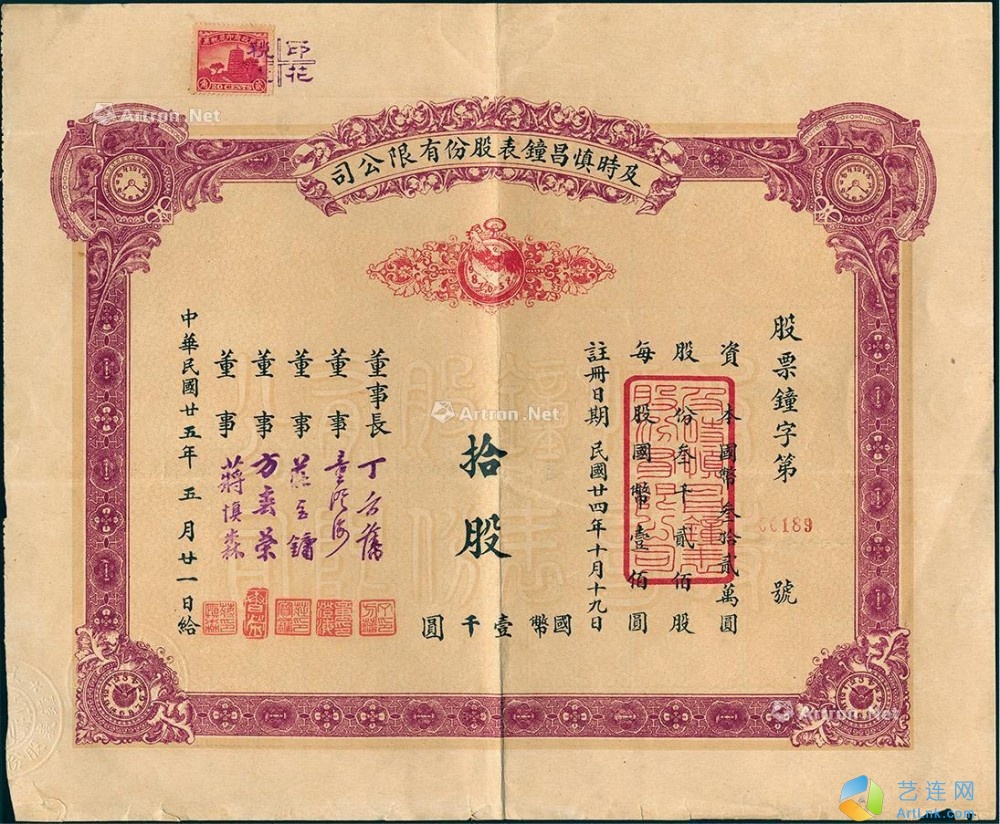 印花
税
20 CENTS
及時慎昌鐘表股份有限公司
股票鐘字第 189 號
資本國幣叁拾貳萬圓
股份叁千貳佰股
每股國幣壹佰圓
註冊日期民國廿四年十月十九日
拾股
國幣壹千圓
董事長
董事
董事
董事 方
董事 蔣慎森
中華民國廿五年五月廿一日給
Artron.Net
Artron.Net
Artron.Net
Artron.Net
Artron.Net
艺连网
ArtLnk.com